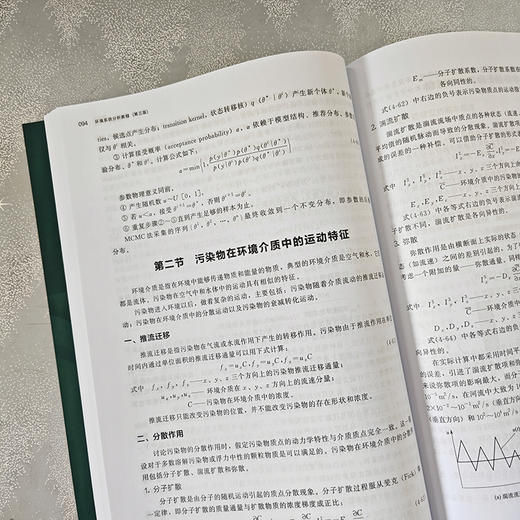 094 环境系统分析教程（第三版）
ties，候选点产生分布；transition kernel，状态转移核）q（θ*｜θⁱ）产生新个体θ*，新个
仅与θⁱ相关。
③ 计算接受概率（acceptance probability）α，α依赖于模型结构、推荐分布、参数
验分布、θ*和θⁱ，计算公式如下：
α=min[1, p(y|θ*)p(θ*)q(θⁱ|θ*) / p(y|θⁱ)p(θⁱ)q(θ*|θⁱ)]
参数物理意义同前。
④ 产生随机数u~U［0，1］。
⑤ 若u<α，接受θⁱ⁺¹=θ*，否则θⁱ⁺¹=θⁱ。
⑥ 重复步骤②~⑤直到产生足够的样本为止。
MCMC法采集的序列（θ¹，θ²，…，θⁿ）最终收敛到一个不变分布，即参数的
第二节 污染物在环境介质中的运动特征
环境介质是指在环境中能够传递物质和能量的物质，典型的环境介质是空气和水，它
都是流体。污染物在空气中和水体中的运动具有相似的特征。
污染物进入环境以后，做着复杂的运动，主要包括：污染物随着介质流动的推流迁移运
动；污染物在环境介质中的分散运动以及污染物的衰减转化运动。
一、推流迁移
推流迁移是指污染物在气流或水流作用下产生的转移作用。污染物由于推流作用在单位
时间内通过单位面积的推流迁移通量可以用下式计算：
fₓ=uₓC，f_y=u_yC，f_z=u_zC
式中 fₓ，f_y，f_z——x，y，z三个方向上的污染物推流迁移通量；
uₓ，u_y，u_z——环境介质在x，y，z方向上的流速分量；
C——污染物在环境介质中的浓度。
推流迁移只能改变污染物的位置，并不能改变污染物的存在形状和浓度。
二、分散作用
讨论污染物的分散作用时，假定污染物质点的动力学特性与介质质点完全一致。这一
设对于多数溶解污染物或浮力中性的颗粒物质是可以满足的。污染物在环境介质中的分散
用包括分子扩散、湍流扩散和弥散。
1. 分子扩散
分子扩散是由分子的随机运动引起的质点分散现象。分子扩散过程服从斐克（Fick）第
一定律，即分子扩散的质量通量与扩散物质的浓度梯度成正比：
Eₘ——分子扩散系数，分子扩散系数在
各向同性的。
式(4-62)中右边的负号表示污染物质点的运动
2. 湍流扩散
湍流扩散是湍流流场中质点的各种状态（流速、
平均值的随机脉动而导致的分散现象。
成的误差的一种补偿。可以借助分子扩散的形式
式中
式(4-63)中各等式右边的负号表示
子扩散不同，湍流扩散是各向异性的。
3. 弥散
弥散作用是由横断面上实际的状态
（如流速）之间的差别引起的。为了
考虑一个附加的量——弥散通量。同样
式中
Dₓ，D_y，D_z
式(4-64)中各等式右边的负号
向异性的。
在实际计算中都采用时间平
的误差，引进了湍流扩散项和弥
来说弥散项的影响最大，而分
10⁻⁵~10⁻⁴m²/s，在河流中大致为
（垂直方向）和10⁵~10⁶m²/s（
(a) 湍流